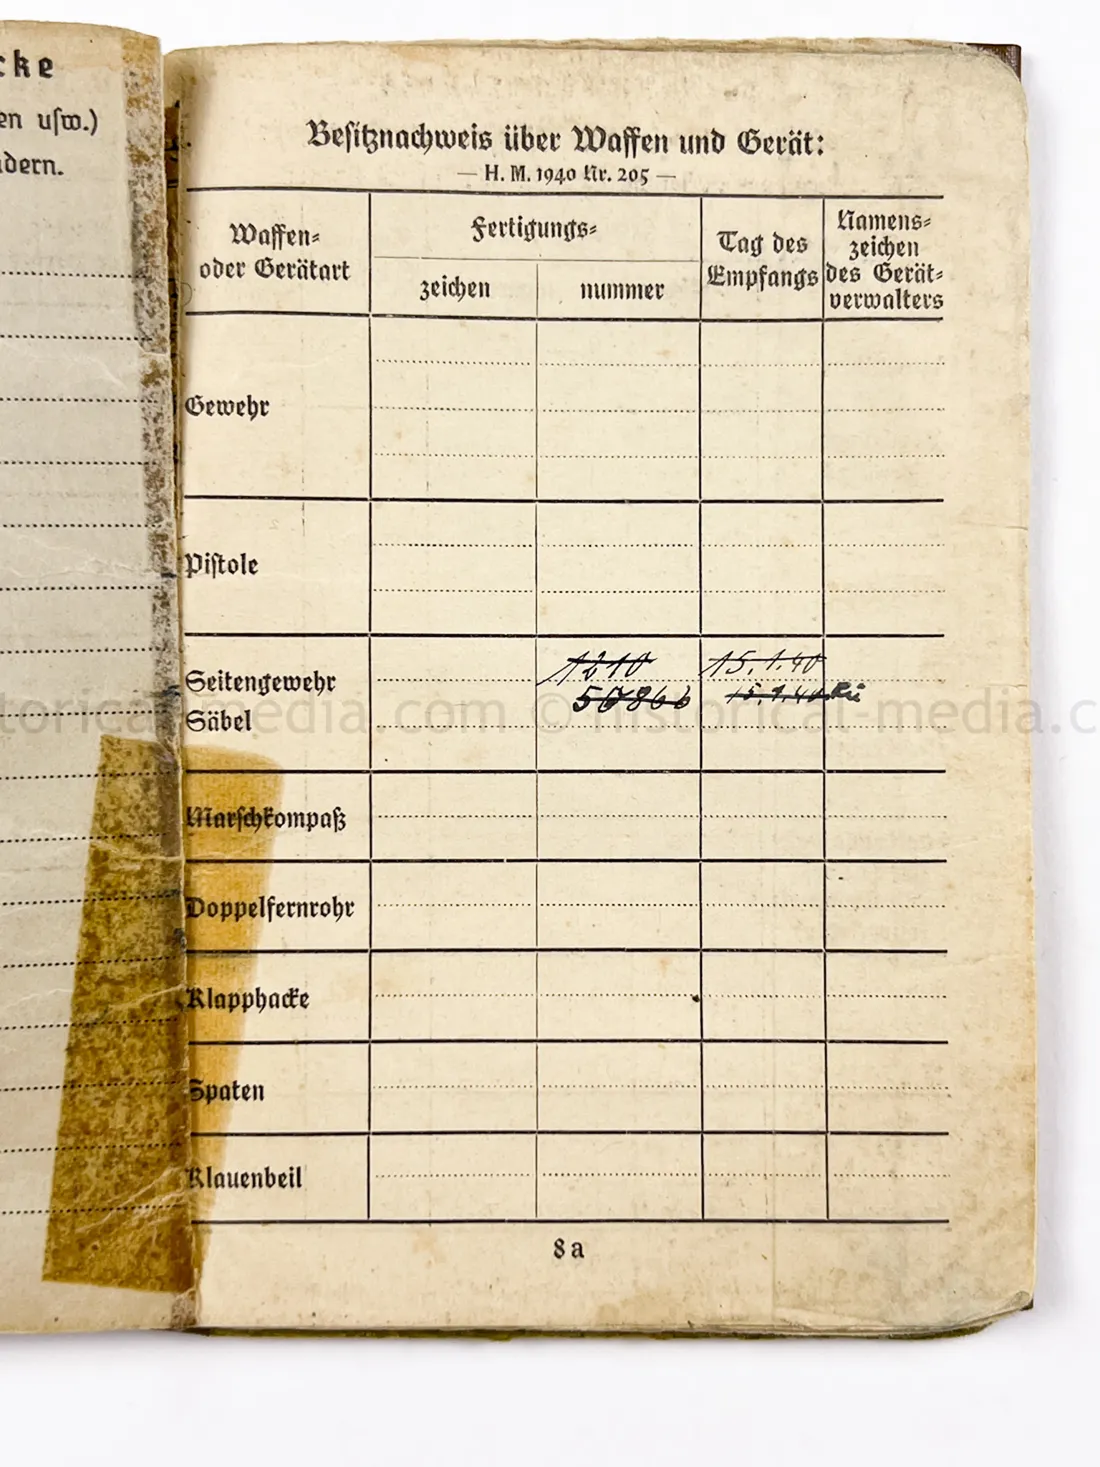 cke
en usw.)
dern.
Besitznachweis über Waffen und Gerät:
— H. M. 1940 Nr. 205 —
Waffen-
oder Gerätart
Fertigungs-
zeichen
nummer
Tag des
Empfangs
Namens-
zeichen
des Gerät-
verwalters
Gewehr
Pistole
Seitengewehr
Säbel
1210 15.1.40
15.1.40
Marschkompaß
Doppelfernrohr
Klapphacke
Spaten
Klauenbeil
8a
torical-media.com © historical-media.c